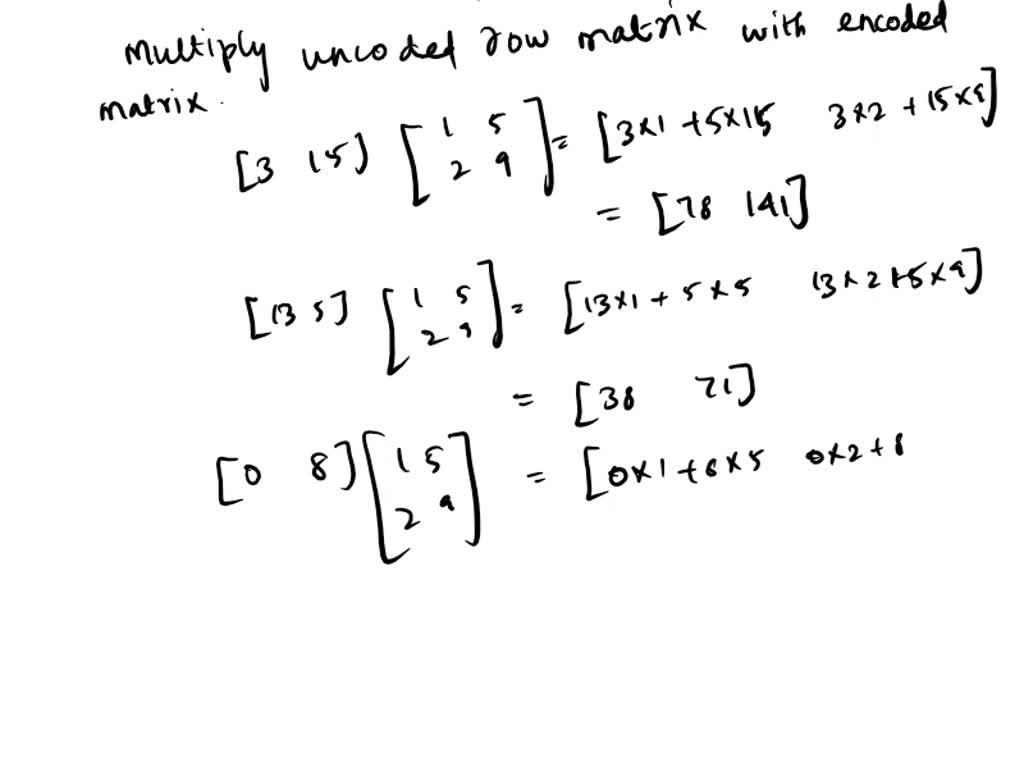 Multiply uncoded row matrix with encoded
matrix.
[3 15] [1 5
2 9] = [3×1 + 5×15 3×2 + 15×9]
= [78 141]
[13 5] [1 5
2 9] = [13×1 + 5×5 13×2+5×9]
= [38 71]
[0 8] [1 5
2 9] = [0×1 + 8×5 0×2 + 8